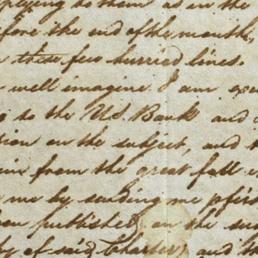 plying to them as in the
before the end of the month,
these few hurried lines.
well imagine I am
to the U.S. Bank and
on the subject, and
from the great fall
me by sending me
been published on the
of said Charter, and